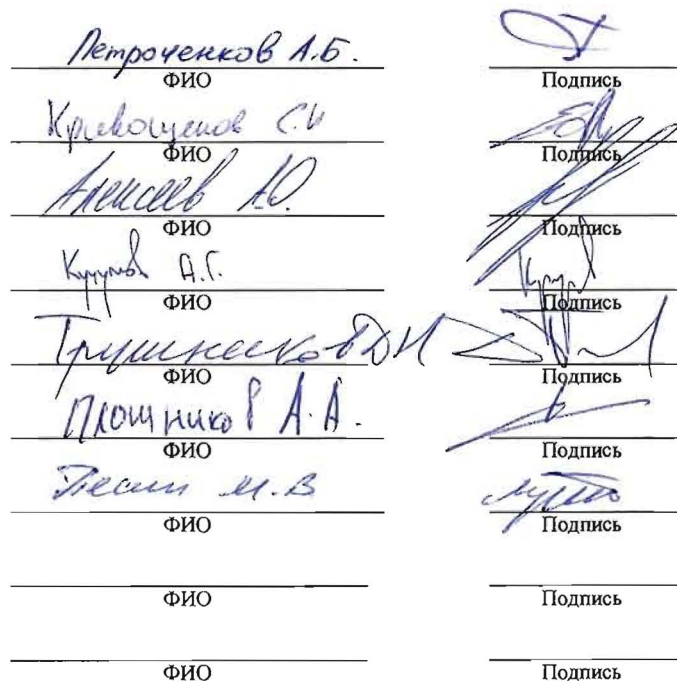 Петроченков А.Б.
ФИО Подпись
Кривощеков С.Н
ФИО Подпись
Алексеев А.О.
ФИО Подпись
А.Г.
ФИО Подпись
Трушников Д Н
ФИО Подпись
Плотников А.А.
ФИО Подпись
Песин М.В
ФИО Подпись
ФИО Подпись
ФИО Подпись